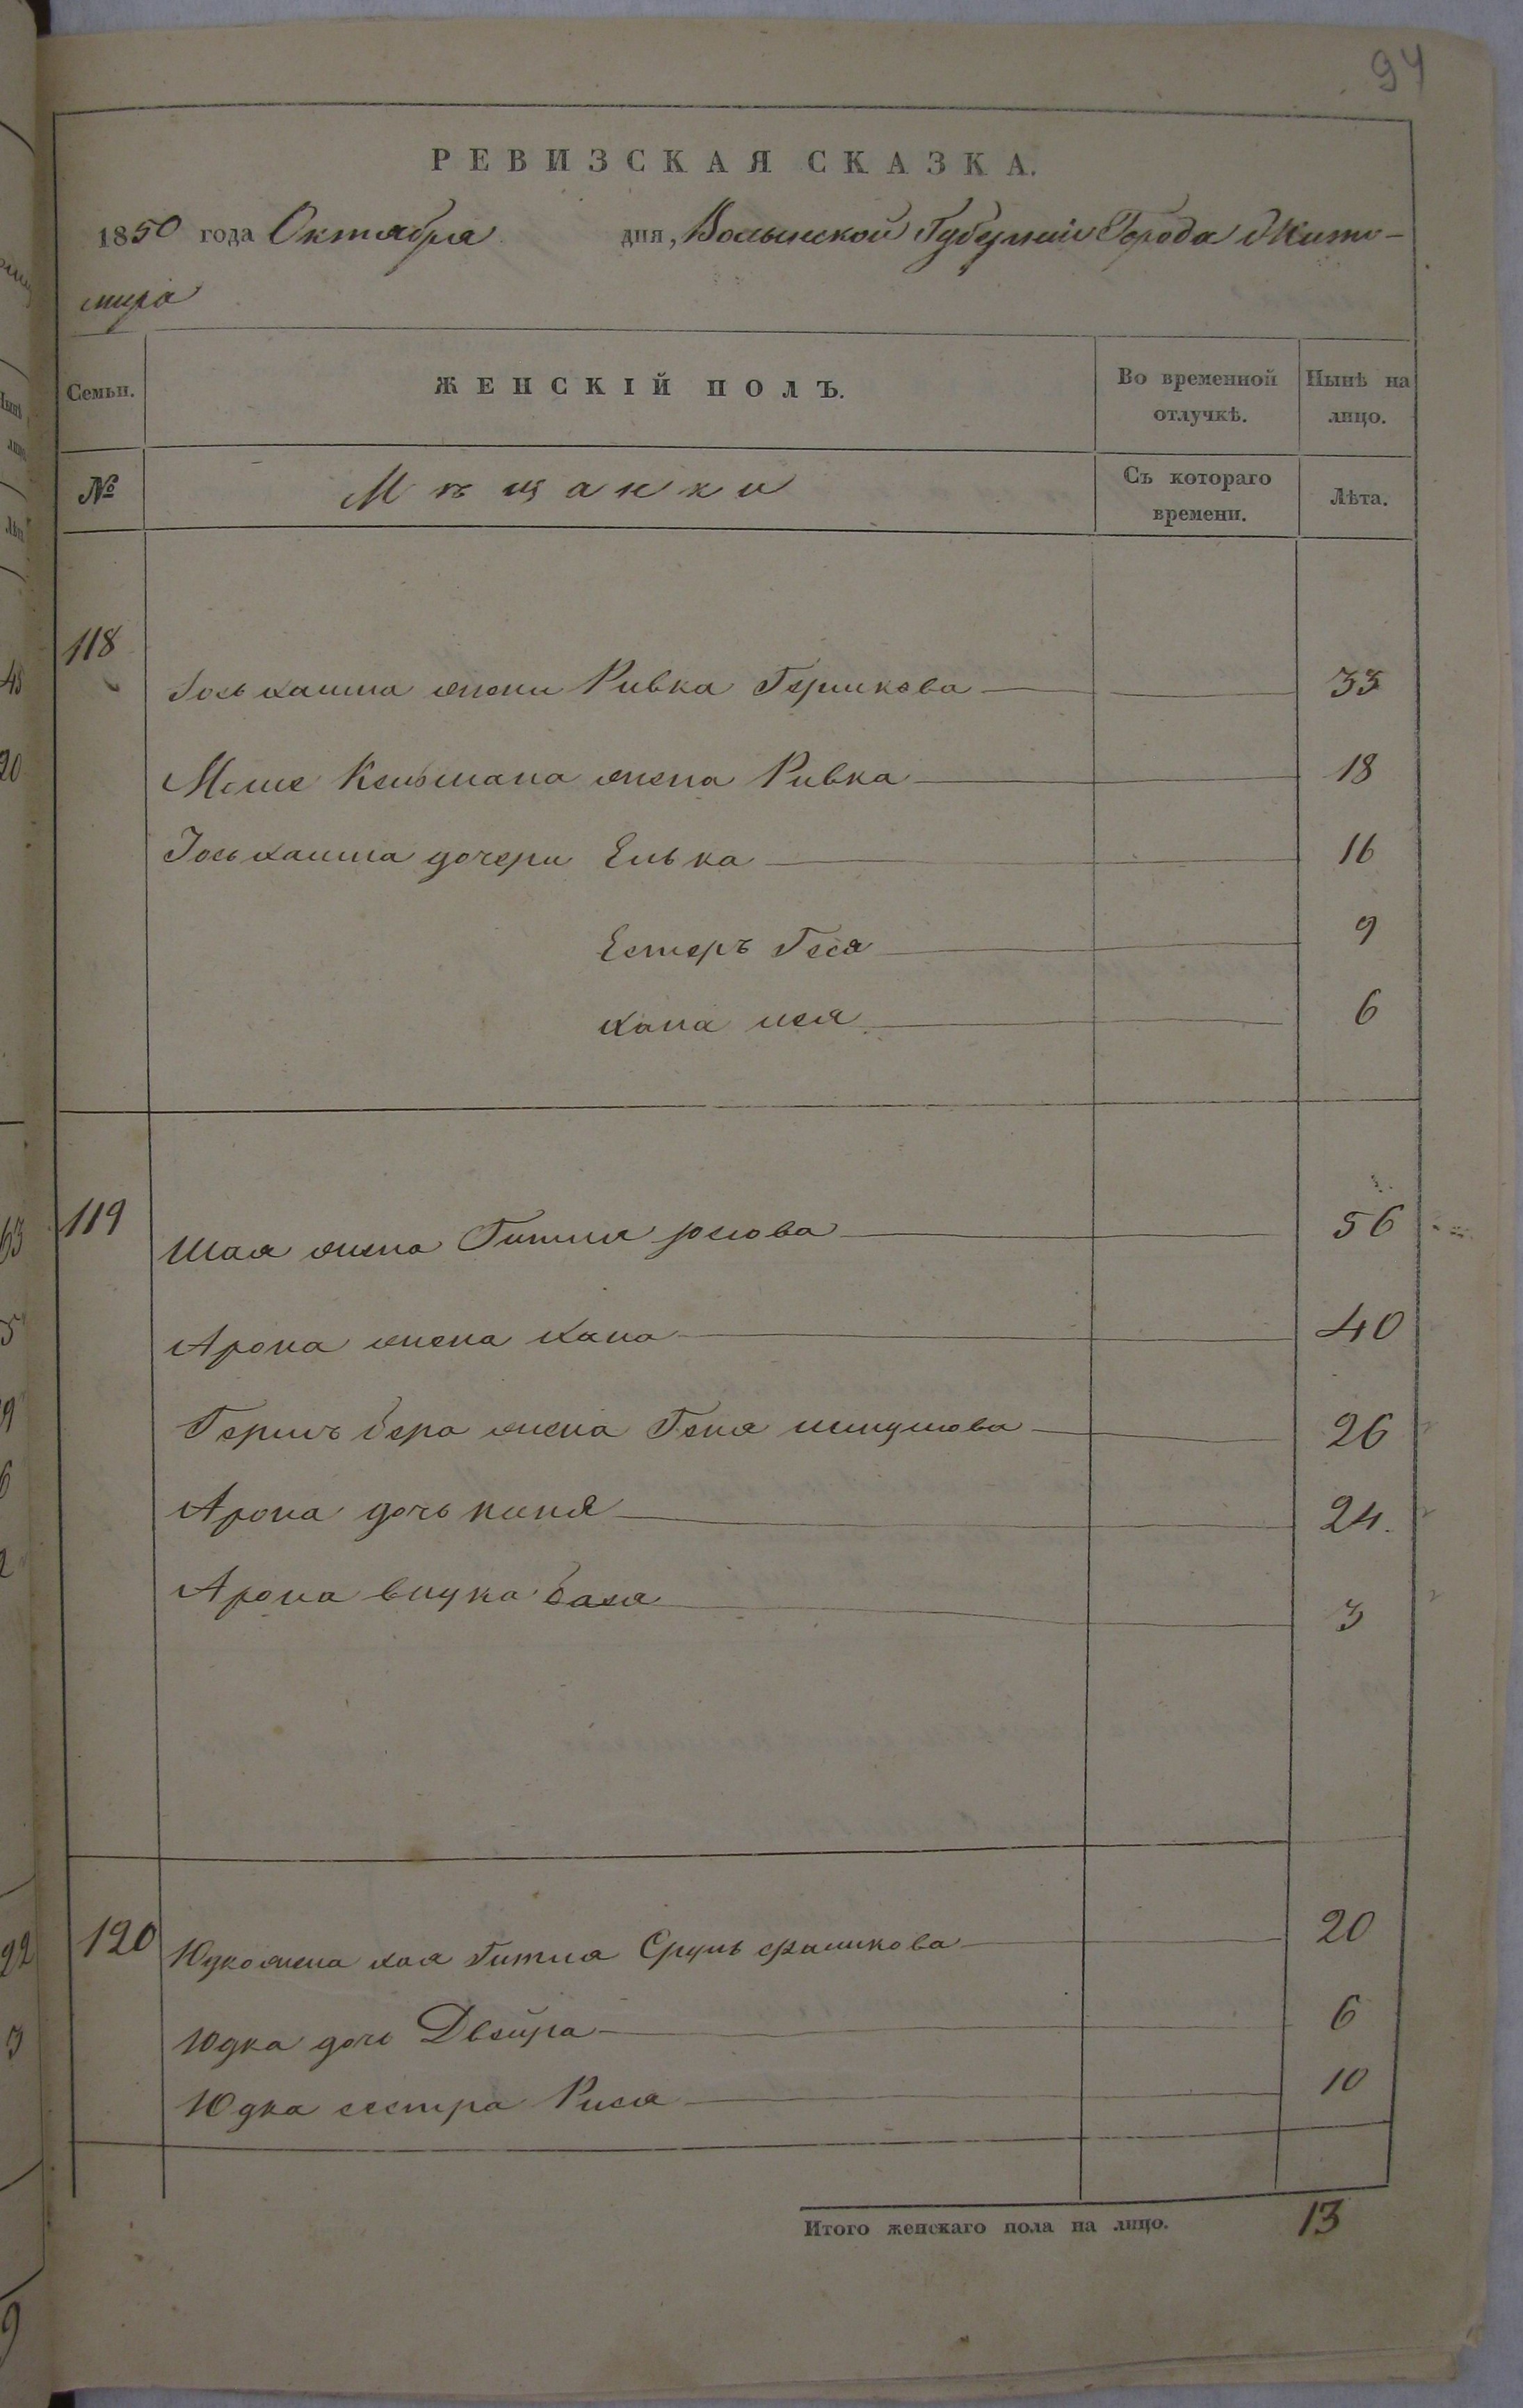 94
РЕВИЗСКАЯ СКАЗКА.
1850 года Октября дня, Волынской Губерніи Города Жито-
мира
Семьи. ЖЕНСКІЙ ПОЛЪ. Во временной отлучкѣ. Нынѣ на лицо.
№ Мѣщанки Съ котораго времени. Лѣта.
118
Іось Хаима жена Ривка Гершкова 33
Мошe Кельмана жена Ривка 18
Іось Хаима дочери Елька 16
Естеръ Геся 9
Хана Лея 6
119
Шая жена Гитля 56
Арона жена Хана 40
Гершъ бера жена Геня 26
Арона дочь 24.
Арона внука бася 3
120 Юдко жена Хая Гитля Сруль 20
Юдка дочь Двейра 6
Юдка сестра Рися 10
Итого женскаго пола на лицо. 13